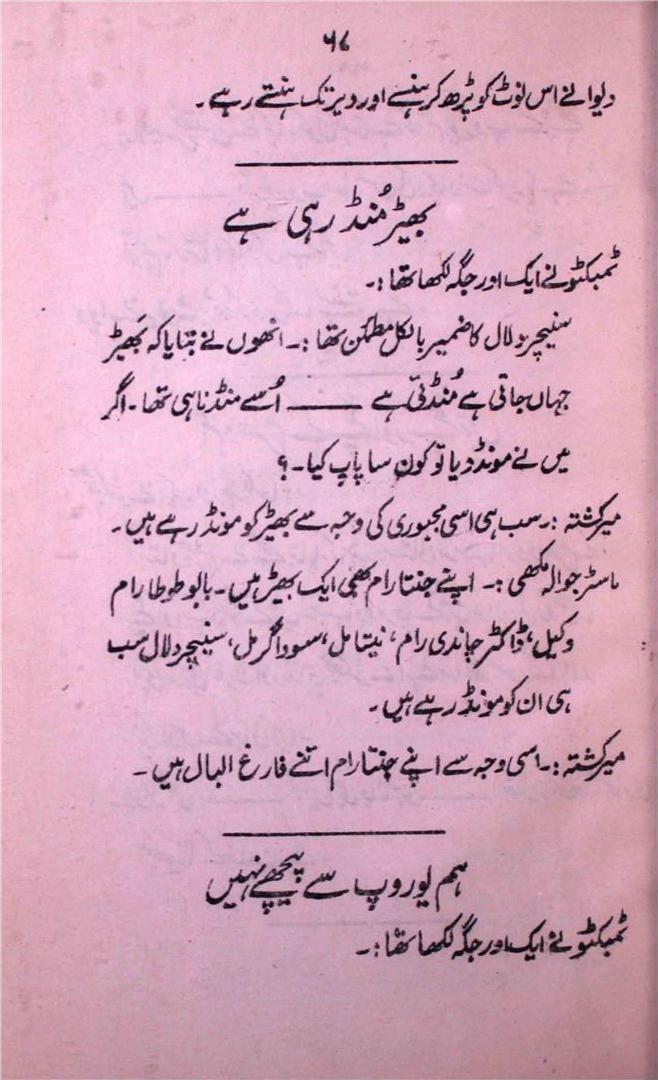 ۶۸
دیوانے اس نوٹ کو پڑھ کر ہنسے اور دیر تک ہنستے رہے۔
بھیڑ مُنڈ رہی ہے
ٹمبکٹو نے ایک اور جگہ لکھا تھا :۔
سنیچر دلال کا ضمیر بالکل مطمئن تھا :۔ انھوں نے بتایا کہ بھیڑ
جہاں جاتی ہے مُنڈتی ہے ——— اُسے منڈنا ہی تھا۔ اگر
میں نے مونڈ دیا تو کون سا پاپ کیا۔ ؟
میر گشتہ :۔ سب ہی اسی مجبوری کی وجہ سے بھیڑ کو مونڈ رہے ہیں۔
ماسٹر جوالہ مکھی :۔ اپنے جنتا رام بھی ایک بھیڑ ہیں۔ بابو طوطا رام
وکیل، ڈاکٹر چاندی رام، نیتا مل، سوداگر مل، سنیچر دلال سب
ہی ان کو مونڈ رہے ہیں۔
میر گشتہ :۔ اسی وجہ سے اپنے جنتا رام اتنے فارغ البال ہیں۔
ہم یوروپ سے پیچھے نہیں
ٹمبکٹو نے ایک اور جگہ لکھا تھا :۔